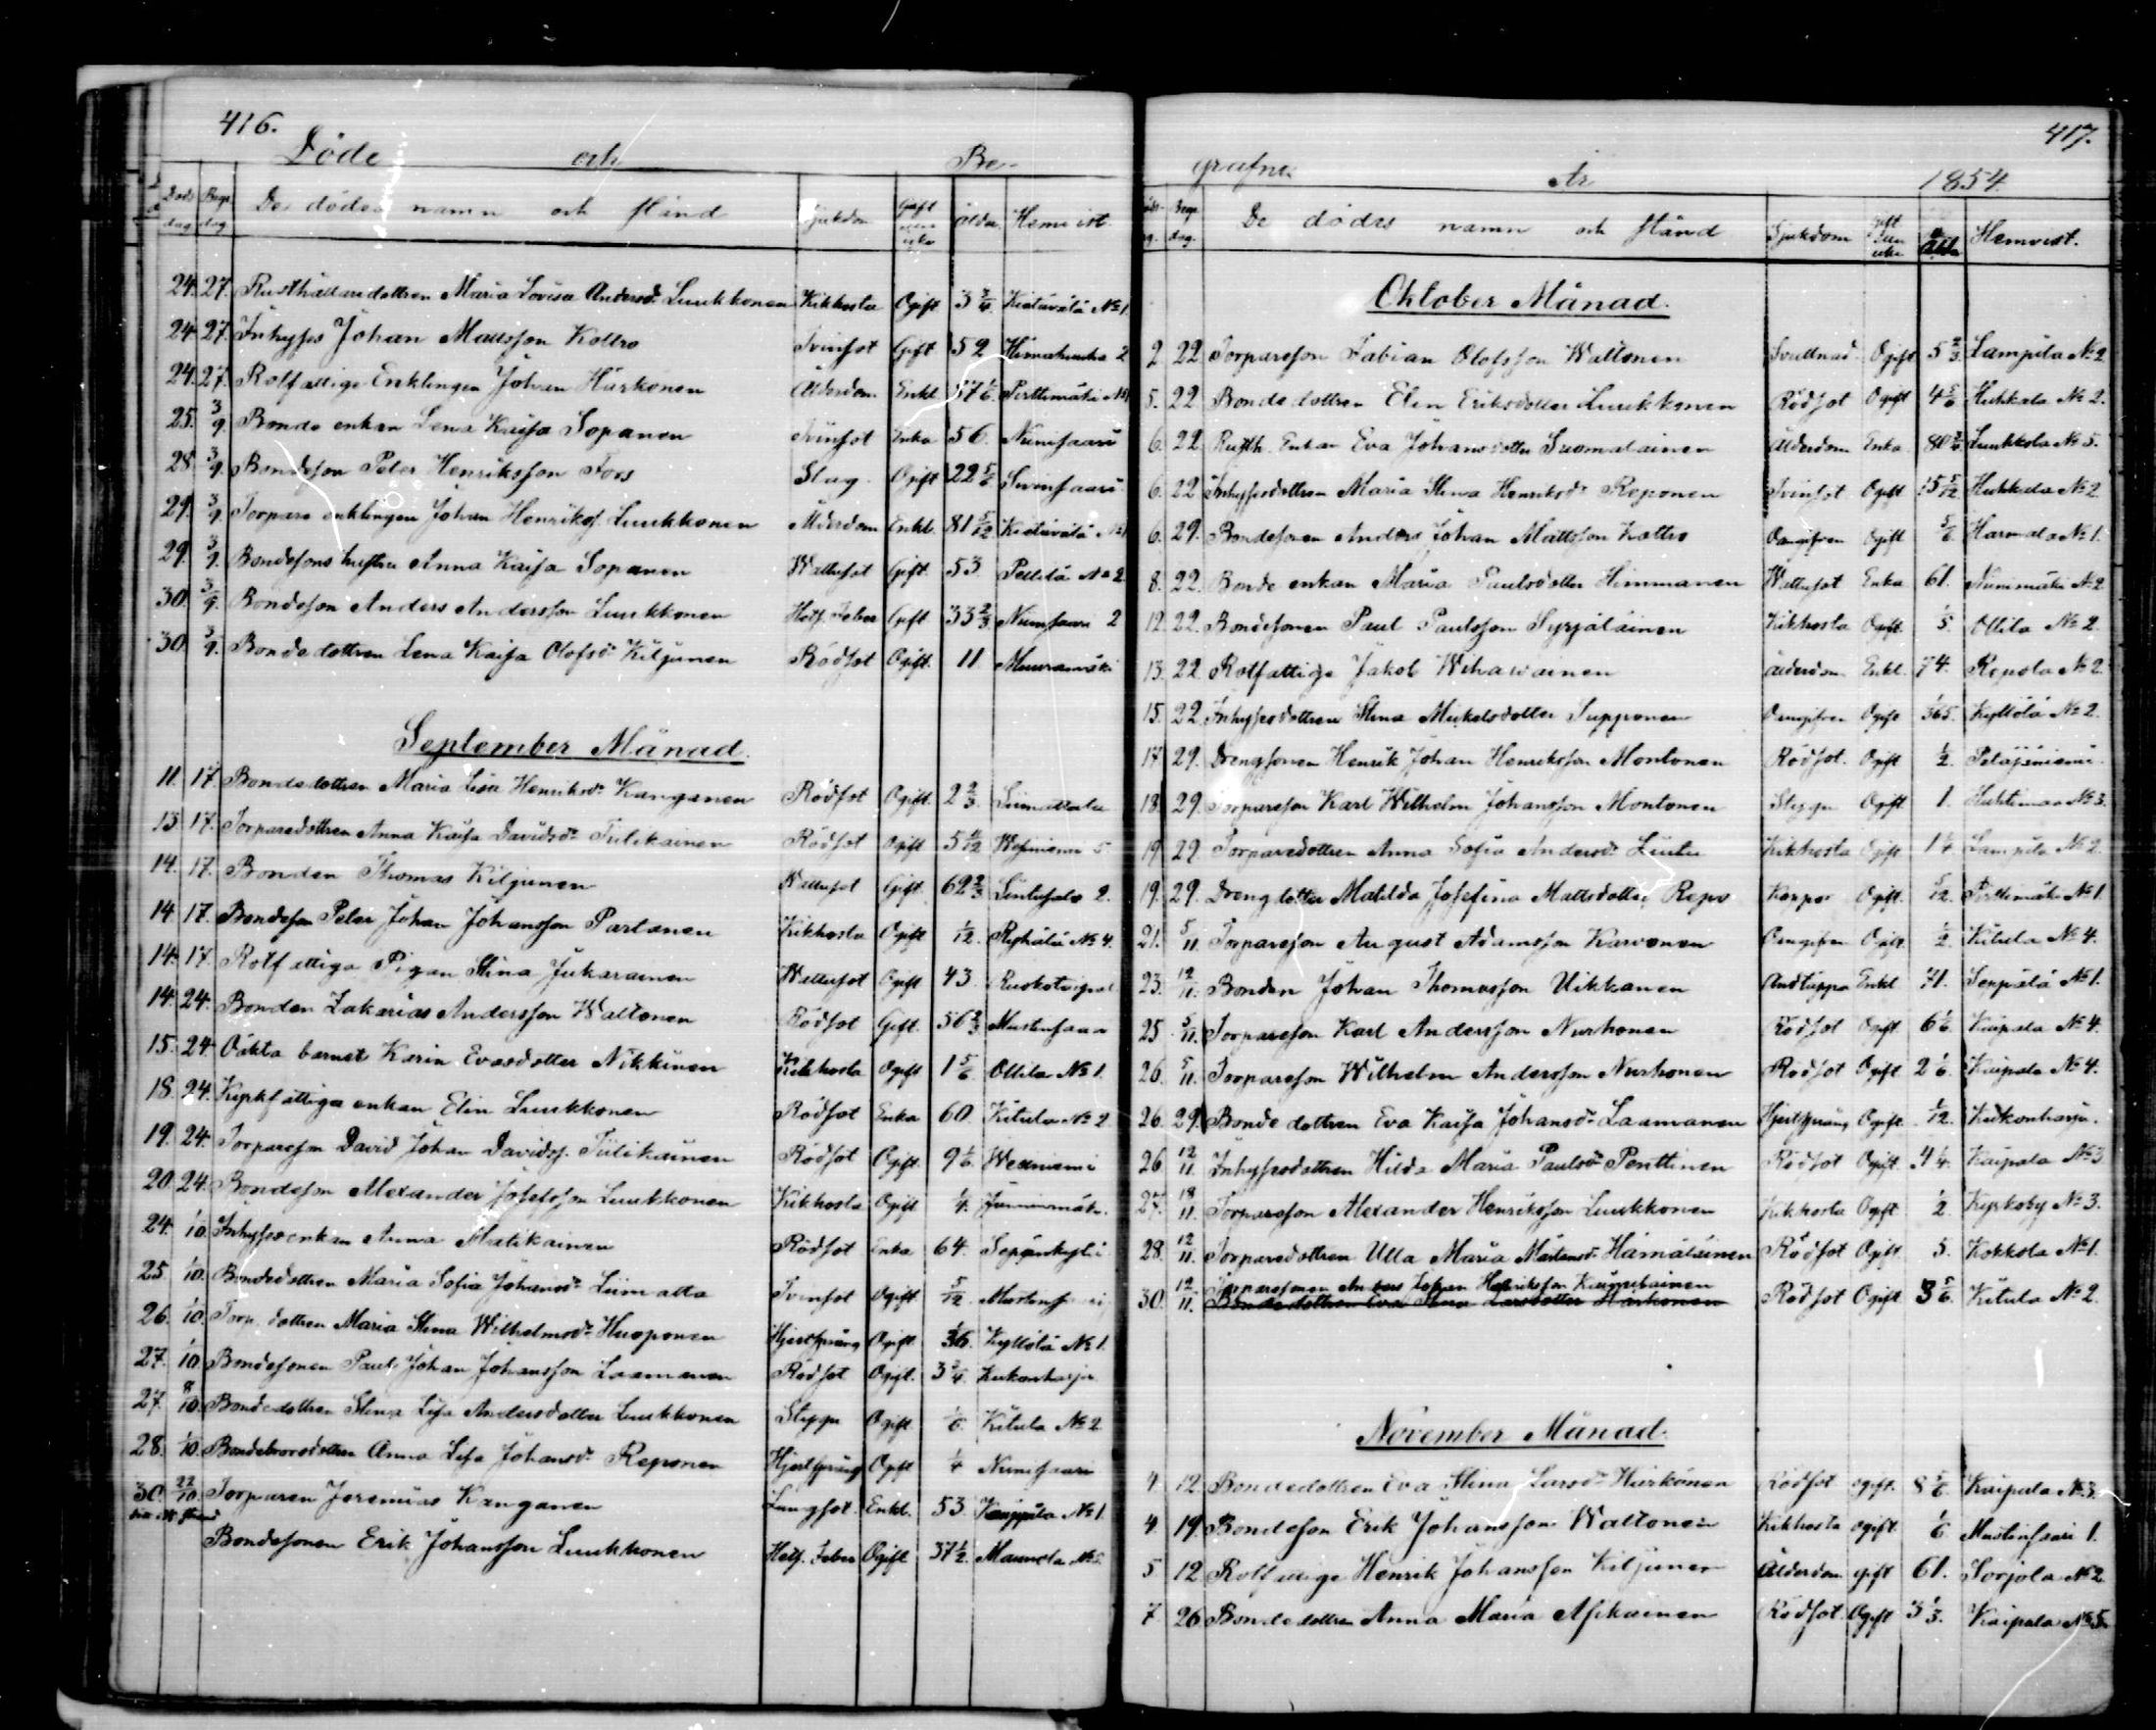 416.
Döde och Be-
Döds dag Begr. dag De dödes namn och stånd Sjukdom Gift eller icke ålder Hemvist.
24. 27. Rusthållaredottren Maria Lovisa Andersdr Luukkonen Kikhosta Ogift 3 3/4 Kietävälä No 1
24. 27. Inhyses Johan Mattsson Kottro Tvinsot Gift 52 Himahuuha 2
24. 27. Rotfattige Enklingen Johan Härkönen Ålderdom Enkl 77 1/6 Perttimäki
25. 3/9. Bonde enkan Lena Kaisa Sopanen Tvinsot Enka 56. Niinisaari
28. 3/9. Bondeson Peter Henriksson Fors Slag Ogift 22 5/6 Sivinsaari
29. 3/9. Torpare enklingen Johan Henrikss. Luukkonen Ålderdom Enkl. 81 5/12 Kietävälä
29. 3/9. Bondesons hustru Anna Kaisa Sopanen Wattusot Gift. 53. Pellilä No 2
30. 3/9. Bondeson Anders Andersson Luukkonen Hets. Feber Gift 33 2/3 Niinisaari 2
30. 3/9. Bonde dottren Lena Kaisa Olofsdr Kiljunen Rödsot Ogift. 11 Muuranmäki
September Månad.
11. 17. Bondedottren Maria Lisa Henriksdr Kanganen Rödsot Ogift. 2 2/3 Liimattala
13. 17. Torparedottren Anna Kaisa Davidsdr Tiilikainen Rödsot Ogift 5 11/12 Wesiniemi 5
14. 17. Bonden Thomas Kiljunen Wattusot Gift. 62 2/3 Lintusalo 2.
14. 17. Bondeson Peter Johan Johansson Partanen Kikhosta Ogift 1/12. Ryhälä No 4.
14. 17. Rotfattiga Pigan Stina Jukarainen Wattusot Ogift 43.
14. 24. Bonden Zakarias Andersson Waltonen Rödsot Gift. 56 2/3 Mustinsaari
15. 24. Oäkta barnet Karin Evasdotter Nikkinen Kikhosta Ogift 1 5/6. Ollila No 1.
18. 24. Kyrkfattiga enkan Elin Luukkonen Rödsot Enka 60. Kitula No 2
19. 24. Torpareson David Johan Davidss. Tiilikainen Rödsot Ogift. 9 1/6. Wesiniemi
20. 24. Bondeson Alexander Josefsson Luukkonen Kikhosta Ogift 1/4. Junninmäki.
24. 1/10. Inhyses enkan Anna Matikainen Rödsot Enka 64.
25. 1/10. Bondedottren Maria Sofia Johansdr Liimatta Tvinsot Ogift 5/12. Mustinsaari
26. 1/10. Torp. dottren Maria Stina Wilhelmsdr Husponen Hjertsprång Ogift Kyllölä No 1.
27. 1/10. Bondesonen Paul Johan Johansson Laamanen Rödsot Ogift. 3 3/4. Kiukonharju
27. 8/10. Bondedottren Stina Lisa Andersdotter Luukkonen Stygn Ogift. 1/6. Kitula No 2
28. 1/10. Anna Lisa Johansdr Reponen Hjertsprång Ogift 1/4 Niinisaari
30. 22/10. Torparen Jeremias Kanganen Lungsot. Enkl. 53. Kauppila No 1.
Bondesonen Erik Johansson Luukkonen Hets. Feber Ogift 37 1/2. Maunola
417.
grafne År 1854
Döds dag. Begr. dag. De dödes namn och stånd Sjukdom Gift eller icke Hemvist.
Oktober Månad.
2 22 Torpareson Fabian Olofsson Waltonen Svullnad Ogift 5 2/3 Lampila No 2
5. 22 Bonde dottren Elin Eriksdotter Luukkonen Rödsot Ogift 4 5/6 Hukkala No 2.
6. 22 Rusth. Enkan Eva Johansdotter Suomalainen Ålderdom Enka Luukkola No 5.
6. 22 Inhysesdottren Maria Stina Henriksdr Reponen Tvinsot Ogift 15 5/12 Hukkala No 2
6. 29. Bondesonen Anders Johan Mattsson Kottro Oangifven Ogift 5/6. Harmala No 1.
8. 22. Bonde enkan Maria Paulsdotter Himmanen Wattusot Enka 61. Niinimäki No 2
12. 22. Bondesonen Paul Paulsson Syrjäläinen Kikhosta Ogift Ollila No 2.
13. 22 Rotfattige Jakob Wihawainen ålderdom Enkl. 74. Repola No 2.
15. 22. Inhysesdottren Stina Mickelsdotter Supponen Oangifven Ogift Kyllölä No 2.
17 29. Drengsonen Henrik Johan Henriksson Montonen Rödsot. Ogift 1/2. Petäjäniemi.
18. 29. Torpareson Karl Wilhelm Johansson Montonen Stygn Ogift 1. Huhtimaa No 3.
19. 29. Torparedottren Anna Sofia Andersdr Lintu Kikhosta Ogift 1 1/4. Lampila No 2.
19. 29. Drengdotter Matilda Josefina Mattsdotter Repo Koppor Ogift. 5/12. Perttimäki No 1.
21. 5/11. Torpareson August Adamsson Karvonen Oangifven Ogift. 1/2. Kitula No 4.
23. 12/11. Bonden Johan Thomasson Uikkanen Andtäppa Enkl 71. Seppälä No 1.
25. 5/11. Torpareson Karl Andersson Nurhonen Rödsot Ogift 6 1/6. Kaipala No 4.
26. 5/11. Torpareson Wilhelm Andersson Nurhonen Rödsot Ogift 2 1/6. Kaipala No 4.
26. 29. Bonde dottren Eva Kaisa Johansdr Laamanen Hjertsprång Ogift. 1/12. Kiukonharju.
26 12/11. Inhysesdottren Hilda Maria Paulsdr Penttinen Rödsot Ogift. 4 1/4. Kaipala No 3
27. 18/11. Torpareson Alexander Henriksson Luukkonen Kikhosta Ogift 1/2. Kyrkoby No 3.
28. 12/11. Torparedottren Ulla Maria Mårtensdr Hämäläinen Rödsot Ogift. 5. Kokkola No 1.
30. 12/11. Torparesonen Anders Johan Henriksson Rödsot Ogift 3 5/6. Kitula No 2.
Bondedottren Eva Stina Larsdotter Härkönen
November Månad.
4 12 Bondedottren Eva Stina Larsdr Härkönen Rödsot ogift. 8 5/6. Kaipala No 3.
4. 19. Bondeson Erik Johansson Waltonen Kikhosta ogift. 1/6 Mustinsaari 1.
5 12 Rotfattige Henrik Johansson Kiljunen Ålderdom gift 61. Sorjola No 2
7. 26 Bondedottren Anna Maria Asikainen Rödsot Ogift 3 1/3. Kaipala No 5.